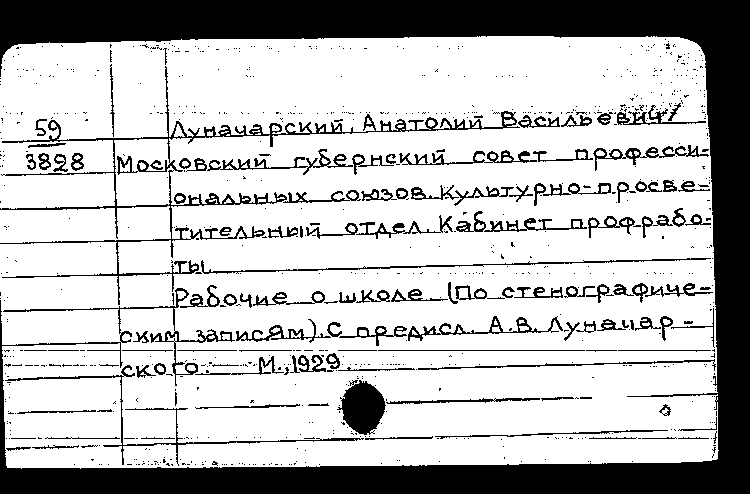 59 Луначарский, Анатолий Васильевич/
3828 Московский губернский совет професси-
ональных союзов. Культурно-просве-
тительный отдел. Кабинет профрабо-
ты.
Рабочие о школе (По стенографиче-
ским записям). С предисл. А.В. Луначар-
ского. М., 1929.